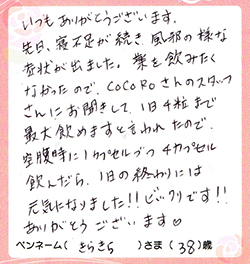 いつもありがとうございます。
先日、寝不足が続き、風邪の様な
症状が出ました。薬を飲みたく
なかったので、COCOROさんのスタッフ
さんにお聞きして、1日4粒まで
最大飲めますと言われたので、
空腹時に1カプセルづつ4カプセル
飲んだら、1日の終わりには
元気になりました!!ビックリです!!
ありがとうございます♡
ペンネーム( きらきら )さま(38)歳